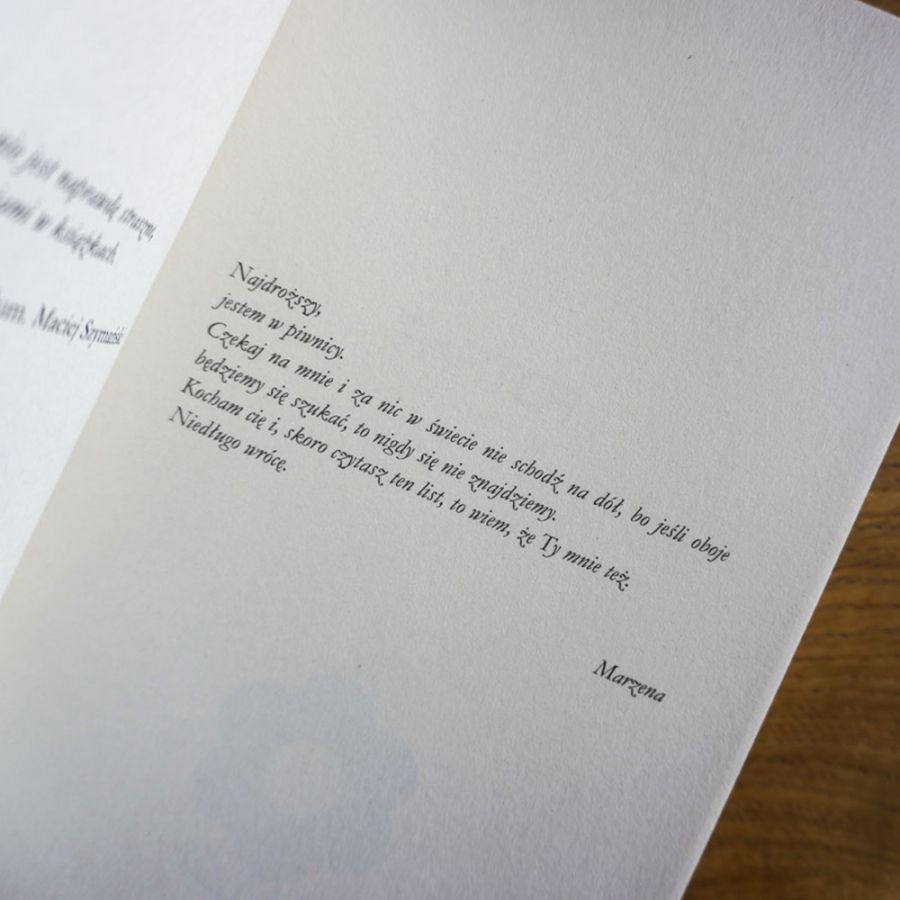 nie jest naprawdę
w książkach
tłum. Maciej Szymański
Najdroższy,
jestem w piwnicy.
Czekaj na mnie i za nic w świecie nie schodź na dół, bo jeśli oboje
będziemy się szukać, to nigdy się nie znajdziemy.
Kocham cię i, skoro czytasz ten list, to wiem, że Ty mnie też.
Niedługo wrócę.
Marzena